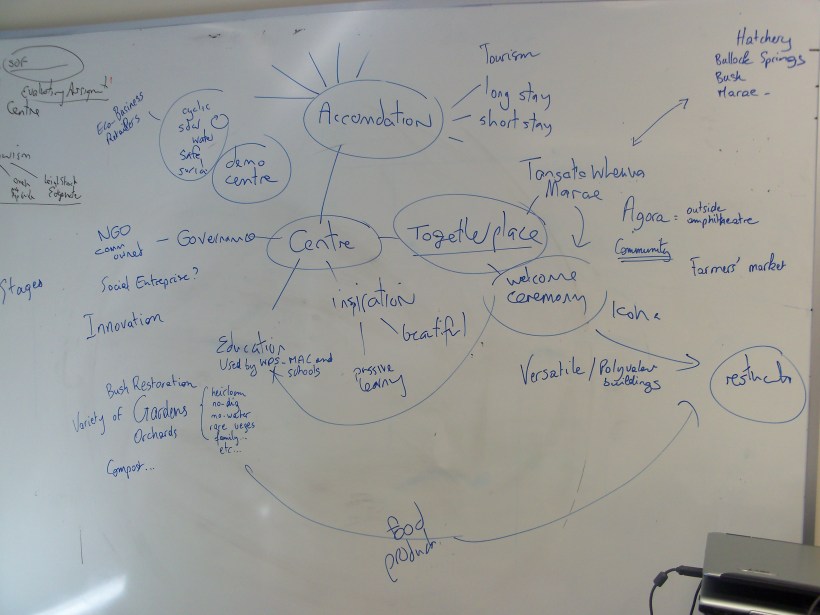 SOF
Evaluating Assignt
Centre
Eco-Business
Retailers
cyclic
sow
water
safe
demo
centre
Accomdation
Tourism
long stay
short stay
Hatchery
Bullock Springs
Bush
Marae -
Tangata Whenua
Marae
Agora = outside
amphitheatre
Community
Farmers' market
NGO
comm
owned
Governance
Centre
Together/place
welcome
ceremony
Stages
Social Enterprise?
Innovation
inspiration
beatiful
passive
learny
Education
Used by WPS-MAC and
schools
Versatile / Polyvalent
buildings
Bush Restoration
Variety of Gardens
Orchards
heirloom
no-dig
no-water
rare veges
family..
etc...
Compost...
food